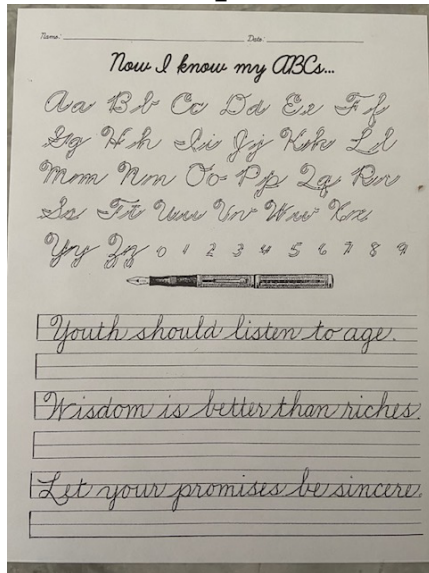 Name: Date:
Now I know my ABCs...
Aa Bb Cc Dd Ee Ff
Gg Hh Ii Jj Kk Ll
Mm Nn Oo Pp Qq Rr
Ss Tt Uu Vv Ww Xx
Yy Zz 0 1 2 3 4 5 6 7 8 9
Youth should listen to age.
Wisdom is better than riches.
Let your promises be sincere.